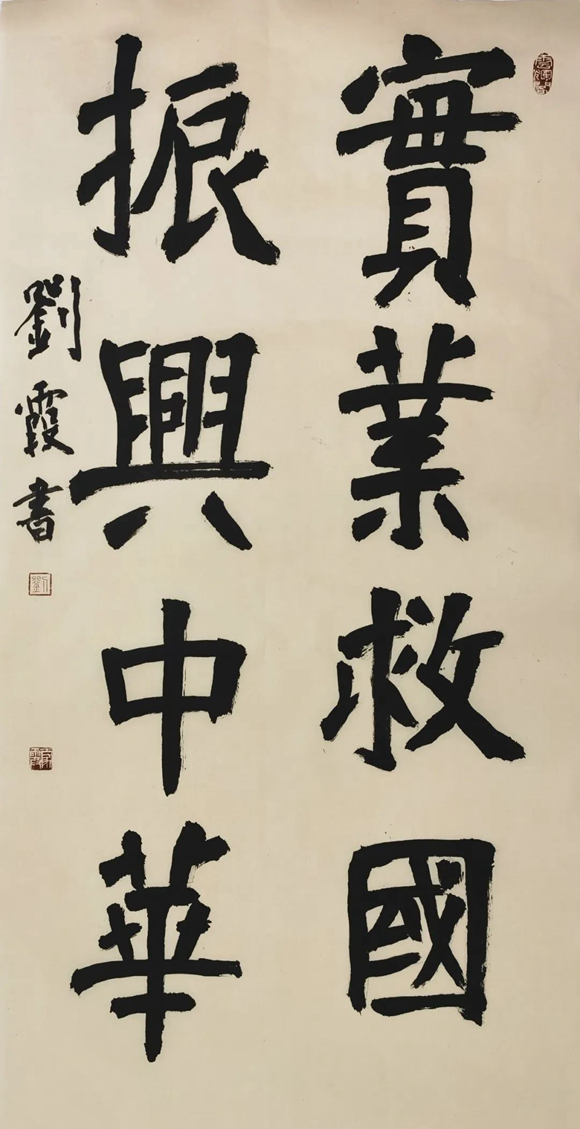 實業救國
振興中華
劉霞書
劉